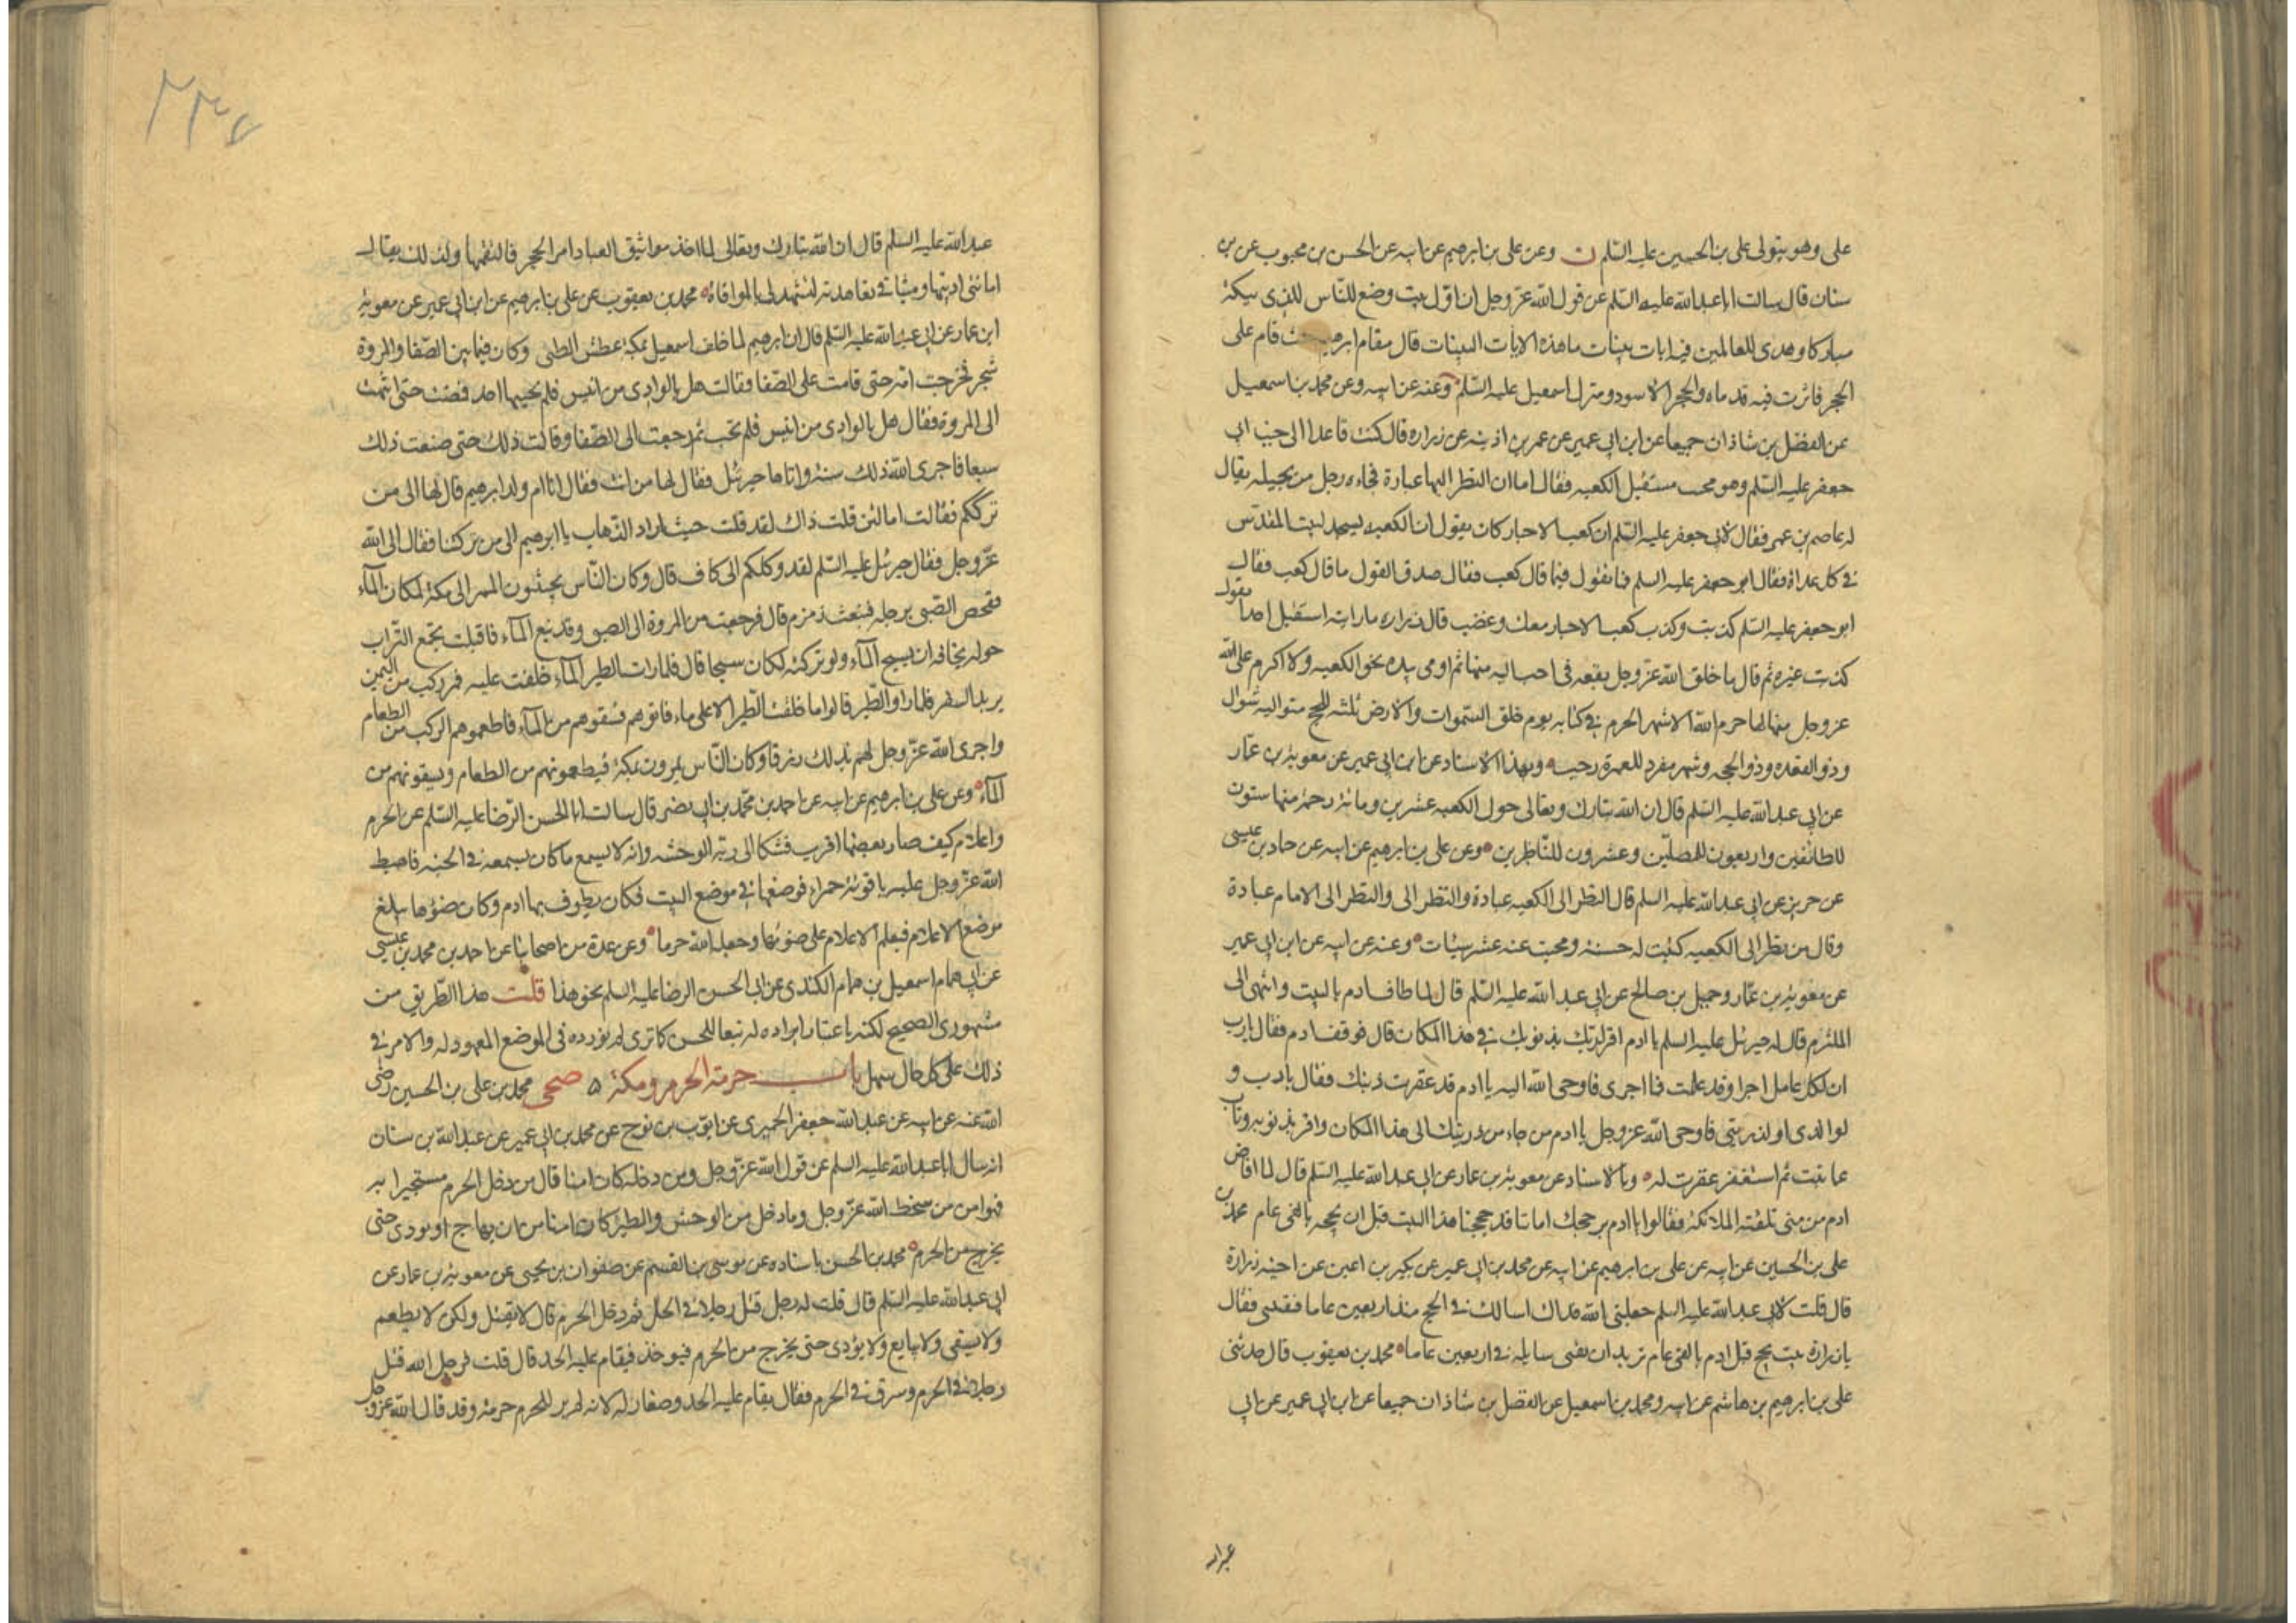 على وهو يتولى على بن الحسين عليه السلم ن وعن على بن ابرهيم عن ابيه عن الحسن بن محبوب عن بن
سنان قال سالت ابا عبد الله عليه السلم عن قول الله عز وجل ان اول بيت وضع للناس للذى ببكة
مباركا وهدى للعالمين فيه ايات بينات ما هذه الايات البينات قال مقام ابرهيم حيث قام على
الحجر فاثرت فيه قدماه والحجر الاسود ومنزل اسمعيل عليه السلم وعنه عن ابيه وعن محمد بن اسمعيل
عن الفضل بن شاذان جميعا عن ابن ابى عمير عن عمر بن اذينه عن زراره قال كنت قاعدا الى جنب ابى
جعفر عليه السلم وهو محتب مستقبل الكعبه فقال اما ان النظر اليها عبادة فجاءه رجل من بجيله يقال
له عاصم بن عمر فقال لابى جعفر عليه السلم ان كعب الاحبار كان يقول ان الكعبه يسجد لبيت المقدس
فى كل غداة فقال ابو جعفر عليه السلم فما تقول فيما قال كعب فقال صدق القول ما قال كعب فقال
ابو جعفر عليه السلم كذبت وكذب كعب الاحبار معك وغضب قال زراره ما رايته استقبل احدا بقول
كذبت غيره ثم قال ما خلق الله عز وجل بقعه فى احب اليه منها ثم اومى بيده نحو الكعبه ولا اكرم على الله
عز وجل منها لها حرم الله الاشهر الحرم فى كتابه يوم خلق السموات والارض ثلثه للحج متواليه شوال
وذو القعده وذو الحجه وشهر مفرد للعمرة رجب وبهذا الاسناد عن ابن ابى عمير عن معوية بن عمار
عن ابى عبد الله عليه السلم قال ان الله تبارك وتعالى حول الكعبه عشرين ومائة رحمة منها ستون
للطائفين واربعون للمصلين وعشرون للناظرين وعن على بن ابرهيم عن ابيه عن حماد بن عيسى
عن حريز عن ابى عبد الله عليه السلم قال النظر الى الكعبه عبادة والنظر الى والنظر الى الامام عبادة
وقال من نظر الى الكعبه كتبت له حسنة ومحيت عنه عشر سيئات وعنه عن ابيه عن ابن ابى عمير
عن معوية بن عمار وجميل بن صالح عن ابى عبد الله عليه السلم قال لما طاف ادم بالبيت وانتهى الى
الملتزم قال له جبرئيل عليه السلم يا ادم اقر لربك بذنوبك فى هذا المكان قال فوقف ادم فقال يا رب
ان لكل عامل اجرا وقد عملت فما اجرى فاوحى الله اليه يا ادم قد غفرت ذنبك فقال يا رب و
لولدى او لذريتى فاوحى الله عز وجل يا ادم من جاء من ذريتك الى هذا المكان واقر بذنوبه وتاب
كما تبت ثم استغفر غفرت له وبالاسناد عن معوية بن عمار عن ابى عبد الله عليه السلم قال لما افاض
ادم من منى تلقته الملائكة فقالوا يا ادم بر حجك اما انا قد حججنا هذا البيت قبل ان تحجه بالفى عام محمد بن
على بن الحسين عن ابيه عن على بن ابرهيم عن ابيه عن محمد بن ابى عمير عن بكير بن اعين عن اخيه زرارة
قال قلت لابى عبد الله عليه السلم جعلنى الله فداك اسالك فى الحج منذ اربعين عاما فتفتينى فقال
يا زرارة بيت يحج قبل ادم بالفى عام تريد ان تفنى سايله فى اربعين عاما محمد بن يعقوب قال حدثنى
على بن ابرهيم بن هاشم عن ابيه ومحمد بن اسمعيل عن الفضل بن شاذان جميعا عن ابن ابى عمير عن ابى
عبد الله
٢٣٧
عبد الله عليه السلم قال ان الله تبارك وتعالى لما اخذ مواثيق العباد امر الحجر فالتقمها ولذلك يقال
امانتى اديتها وميثاقى تعاهدته لتشهد لى بالموافاة محمد بن يعقوب عن على بن ابرهيم عن ابن ابى عمير عن معوية
ابن عمار عن ابى عبد الله عليه السلم قال ان ابرهيم لما خلف اسمعيل بمكة عطش الصبى وكان فيما بين الصفا والمروة
شجر فخرجت امه حتى قامت على الصفا فقالت هل بالوادى من انيس فلم يجبها احد فمضت حتى انتهت
الى المروة فقال هل بالوادى من انيس فلم تجب ثم رجعت الى الصفا وقالت ذلك حتى صنعت ذلك
سبعا فاجرى الله ذلك سنة واتاها جبرئيل فقال لها من انت فقال انا ام ولد ابرهيم قال لها الى من
ترككم فقالت اما لئن قلت ذاك لقد قلت حيث اراد الذهاب يا ابرهيم الى من تركتنا فقال الى الله
عز وجل فقال جبرئيل عليه السلم لقد وكلكم الى كاف قال وكان الناس يجتنبون الممر الى مكة لمكان المآء
ففحص الصبى برجله فنبعت زمزم قال فرجعت من المروة الى الصبى وقد نبع المآء فاقبلت تجمع التراب
حوله مخافه ان يسيح المآء ولو تركته لكان سيحا قال فلما رات الطير المآء حلقت عليه فمر ركب من اليمن
يريد السفر فلما راو الطير قالوا ما حلقت الطير الا على ماء فاتوهم فسقوهم من المآء فاطعموهم الركب من الطعام
واجرى الله عز وجل لهم بذلك رزقا وكان الناس يمرون بمكة فيطعمونهم من الطعام ويسقونهم من
المآء وعن على بن ابرهيم عن ابيه عن احمد بن محمد بن ابى نصر قال سالت ابا الحسن الرضا عليه السلم عن الحرم
واعلامه كيف صار بعضها اقرب فشكا الى ربه الوحشه وانه لا يسمع ما كان يسمعه فى الجنه فاهبط
الله عز وجل عليه ياقوتة حمراء فوضعها فى موضع البيت فكان يطوف بها ادم وكان ضوؤها يبلغ
موضع الاعلام فعلم الاعلام على ضوئها وجعله الله حرما وعن عدة من اصحابنا عن احمد بن محمد بن عيسى
عن ابى همام اسمعيل بن همام الكندى عن ابى الحسن الرضا عليه السلم نحو هذا قلت هذا الطريق من
مشهورى الصحيح لكنه باعتبار ايراده له تبعا للحسن كما ترى لم نورده فى الموضع المعهود له والامر فى
ذلك على كل حال سهل باب حرمة الحرم ومكة ۵ صحى محمد بن على بن الحسين رضى
الله عنه عن ابيه عن عبد الله جعفر الحميرى عن ايوب بن نوح عن محمد بن ابى عمير عن عبد الله بن سنان
انه سال ابا عبد الله عليه السلم عن قول الله عز وجل ومن دخله كان امنا قال من دخل الحرم مستجيرا به
فهو امن من سخط الله عز وجل وما دخل من الوحش والطير كان امنا من ان يهاج او يوذى حتى
يخرج من الحرم محمد بن الحسن باسناده عن موسى بن القسم عن صفوان بن يحيى عن معوية بن عمار عن
ابى عبد الله عليه السلم قال قلت له رجل قتل رجلا فى الحل ثم دخل الحرم قال لا يقتل ولكن لا يطعم
ولا يسقى ولا يبايع ولا يؤذى حتى يخرج من الحرم فيوخذ فيقام عليه الحد قال قلت فرجل الله قتل
رجلا فى الحرم وسرق فى الحرم فقال يقام عليه الحد وصغار له لانه لم ير للحرم حرمة وقد قال الله عز وجل